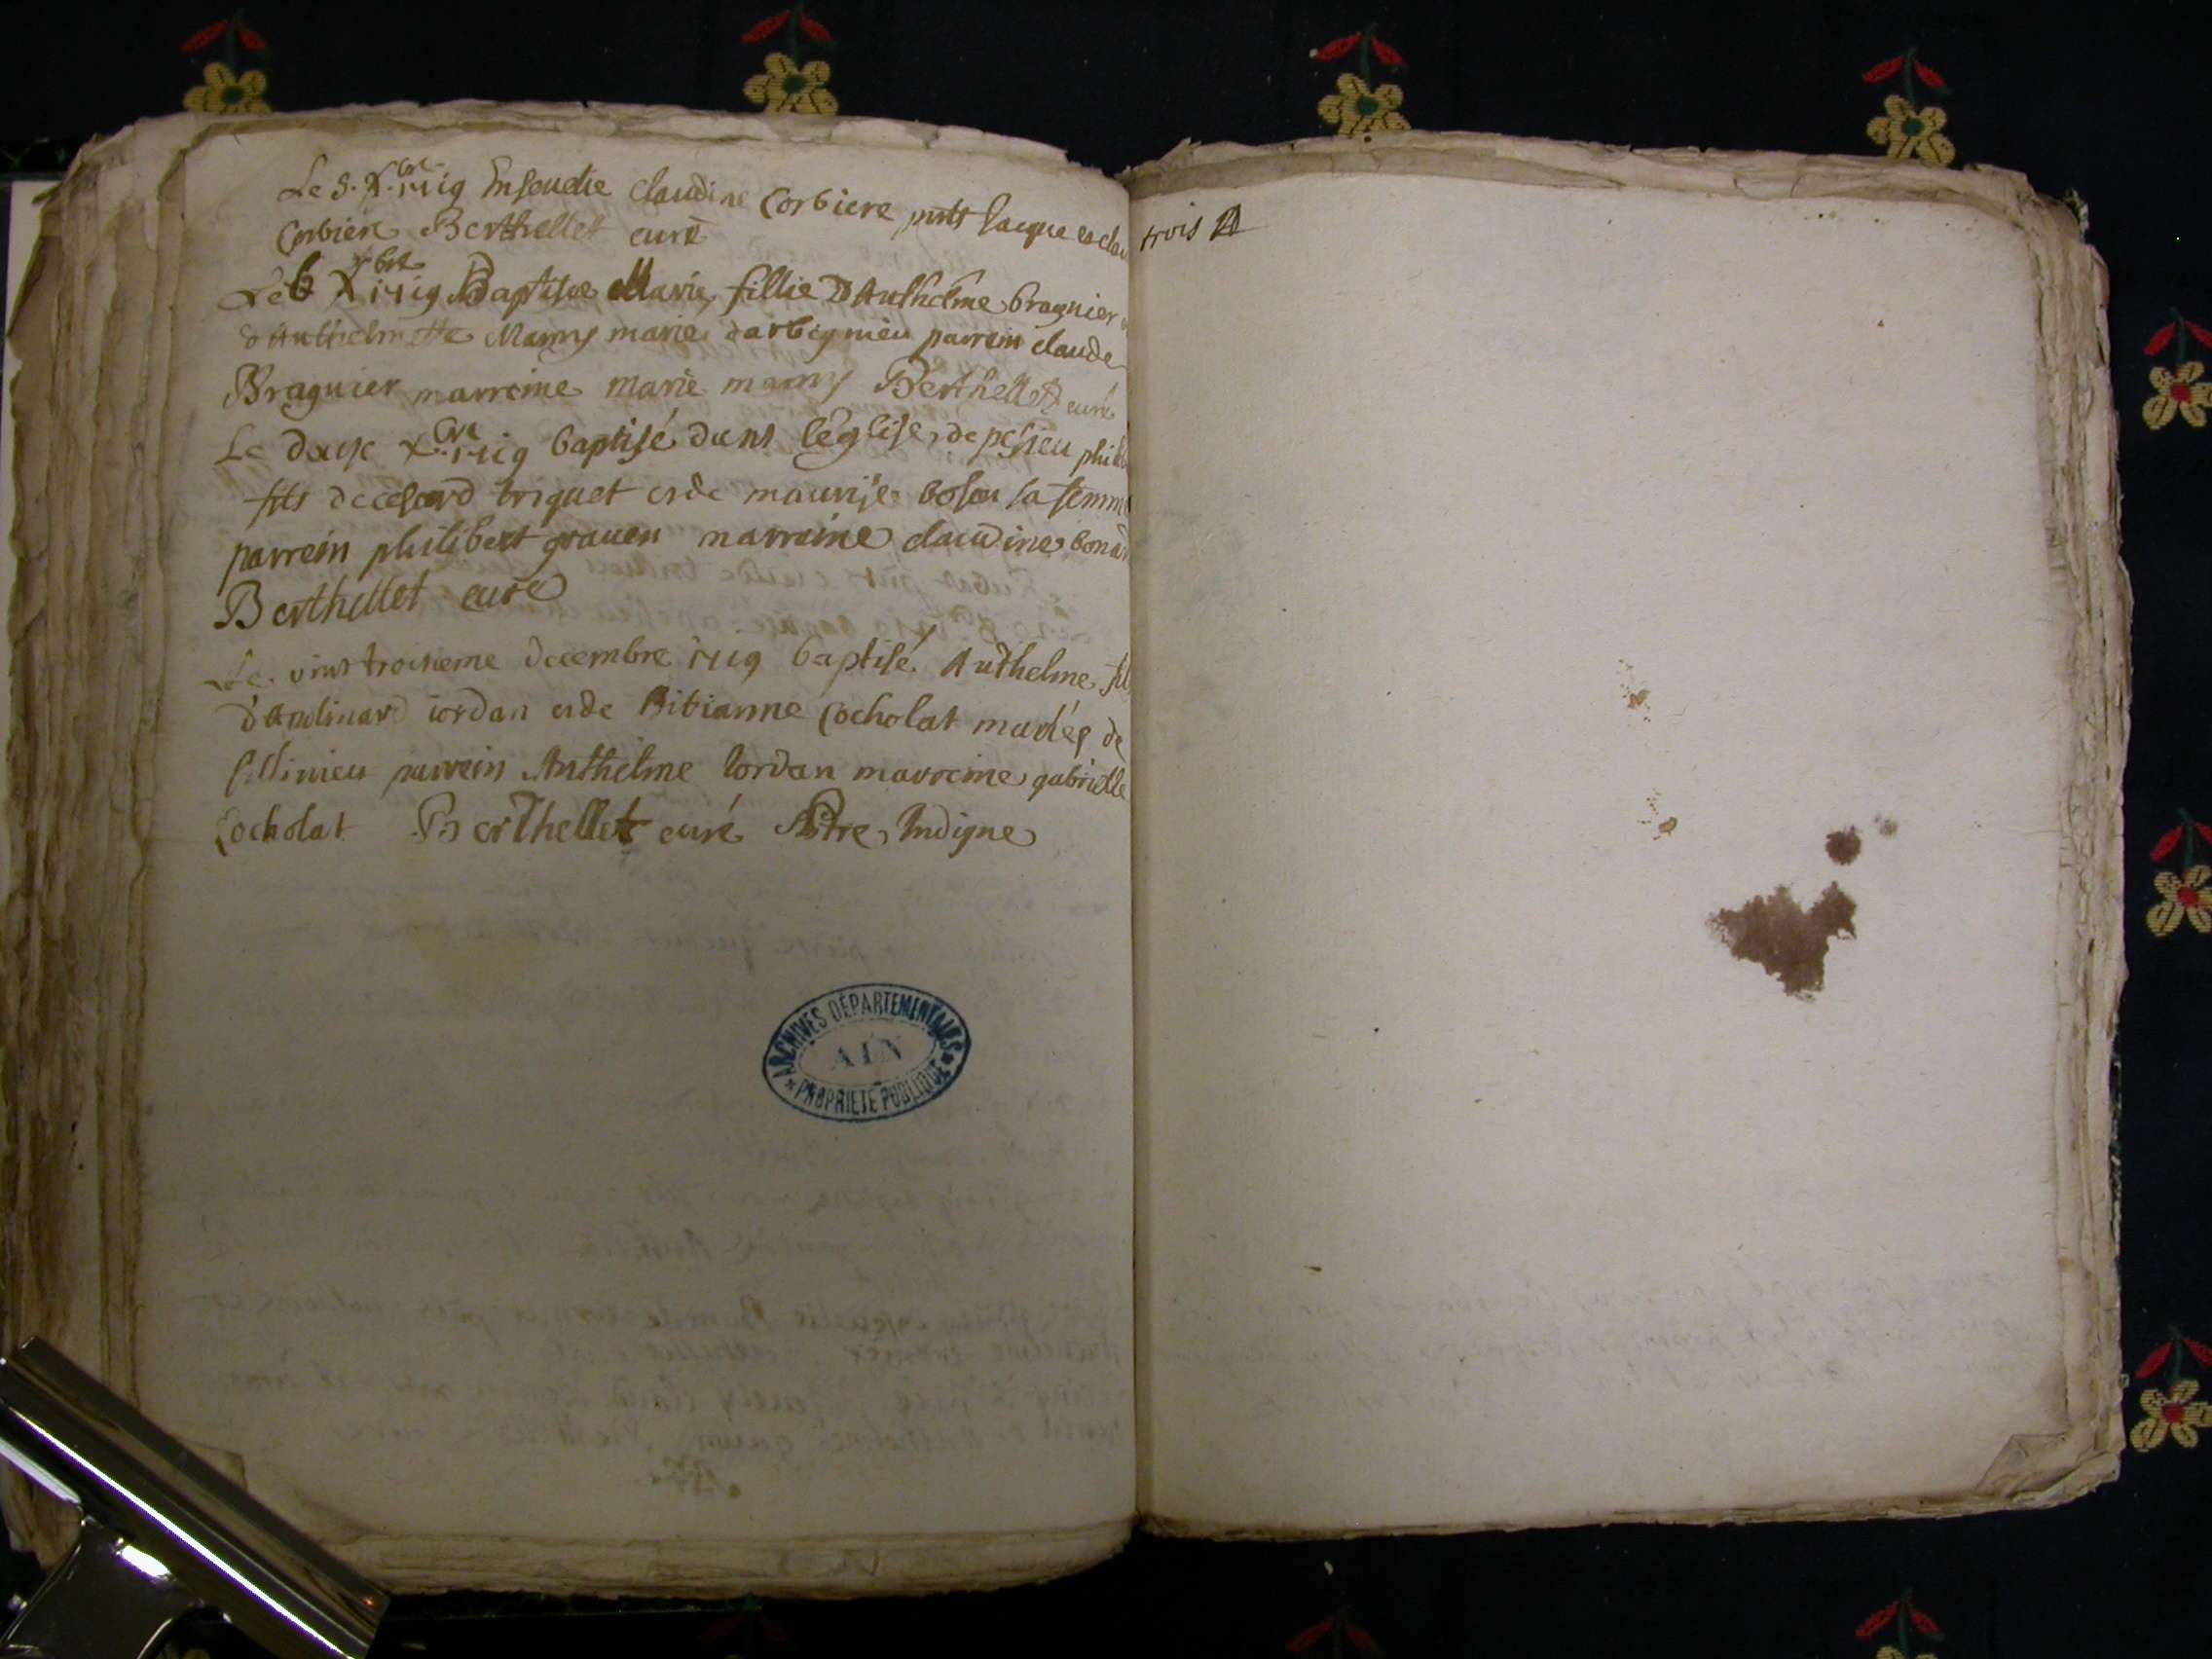 Le 5. X.bre 1719 Ensevelie claudine Corbiere pnts Jacque et clau
Corbiere Berthellet curé
Le 6 Xbre 1719 Baptisee Marie, fillie D'Anthelme bragnier
d'Anthelmette Mamy mariés darbignieu parrein claude
Bragnier marreine marie mamy Berthellet curé
Le douse X.bre 1719 baptisé dans léglise de pesieu phili
fils de cesard briquet et de maurise boson sa femme
parrein philibert graven marreine claudine bona
Berthellet curé
Le vint troisieme decembre 1719 baptisé Anthelme fil
d'Andimard iordan et de Bibianne Cocholat mariés de
Sillinieu parrein Anthelme Iordan marreine gabrielle
Cocholat Berthellet curé Pbtre Indigne
ARCHIVES DÉPARTEMENTALES
AIN
* PROPRIÉTÉ PUBLIQUE *
trois